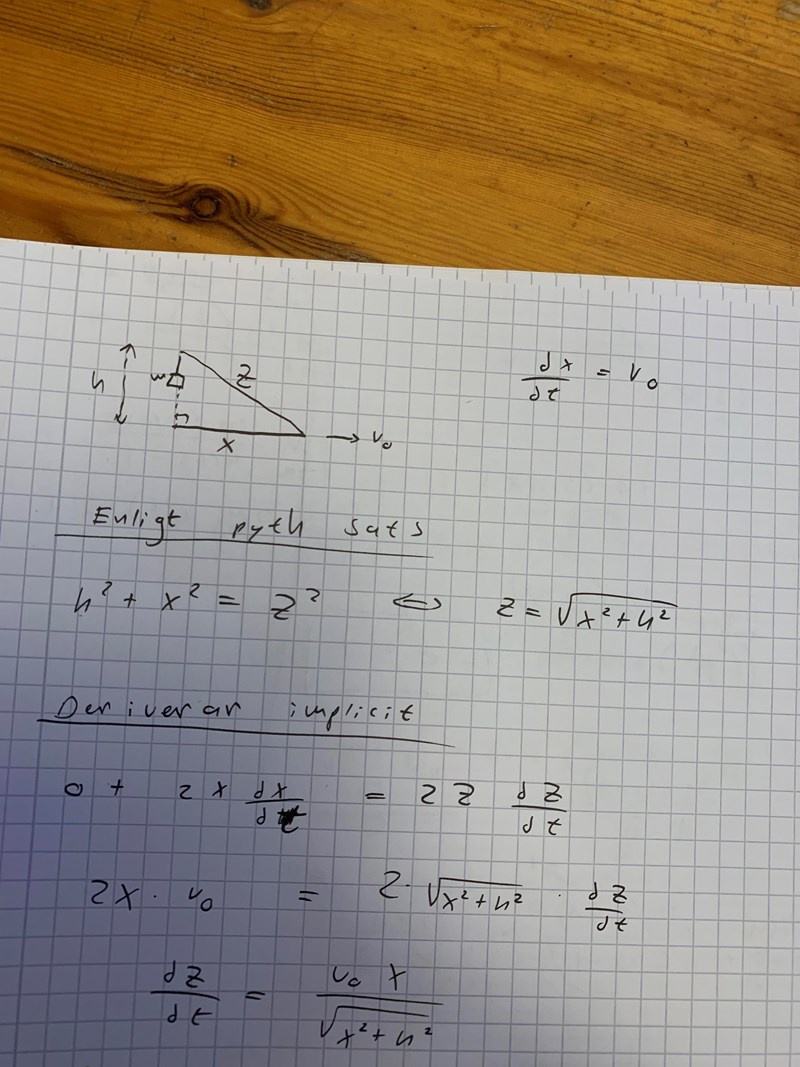 h m z x → v₀
dx/dt = v₀
Enligt pyth sats
h² + x² = z² ⇔ z = √(x² + h²)
Deriverar implicit
0 + 2x dx/dt = 2z dz/dt
2x · v₀ = 2 · √(x² + h²) · dz/dt
dz/dt = v₀ x / √(x² + h²)